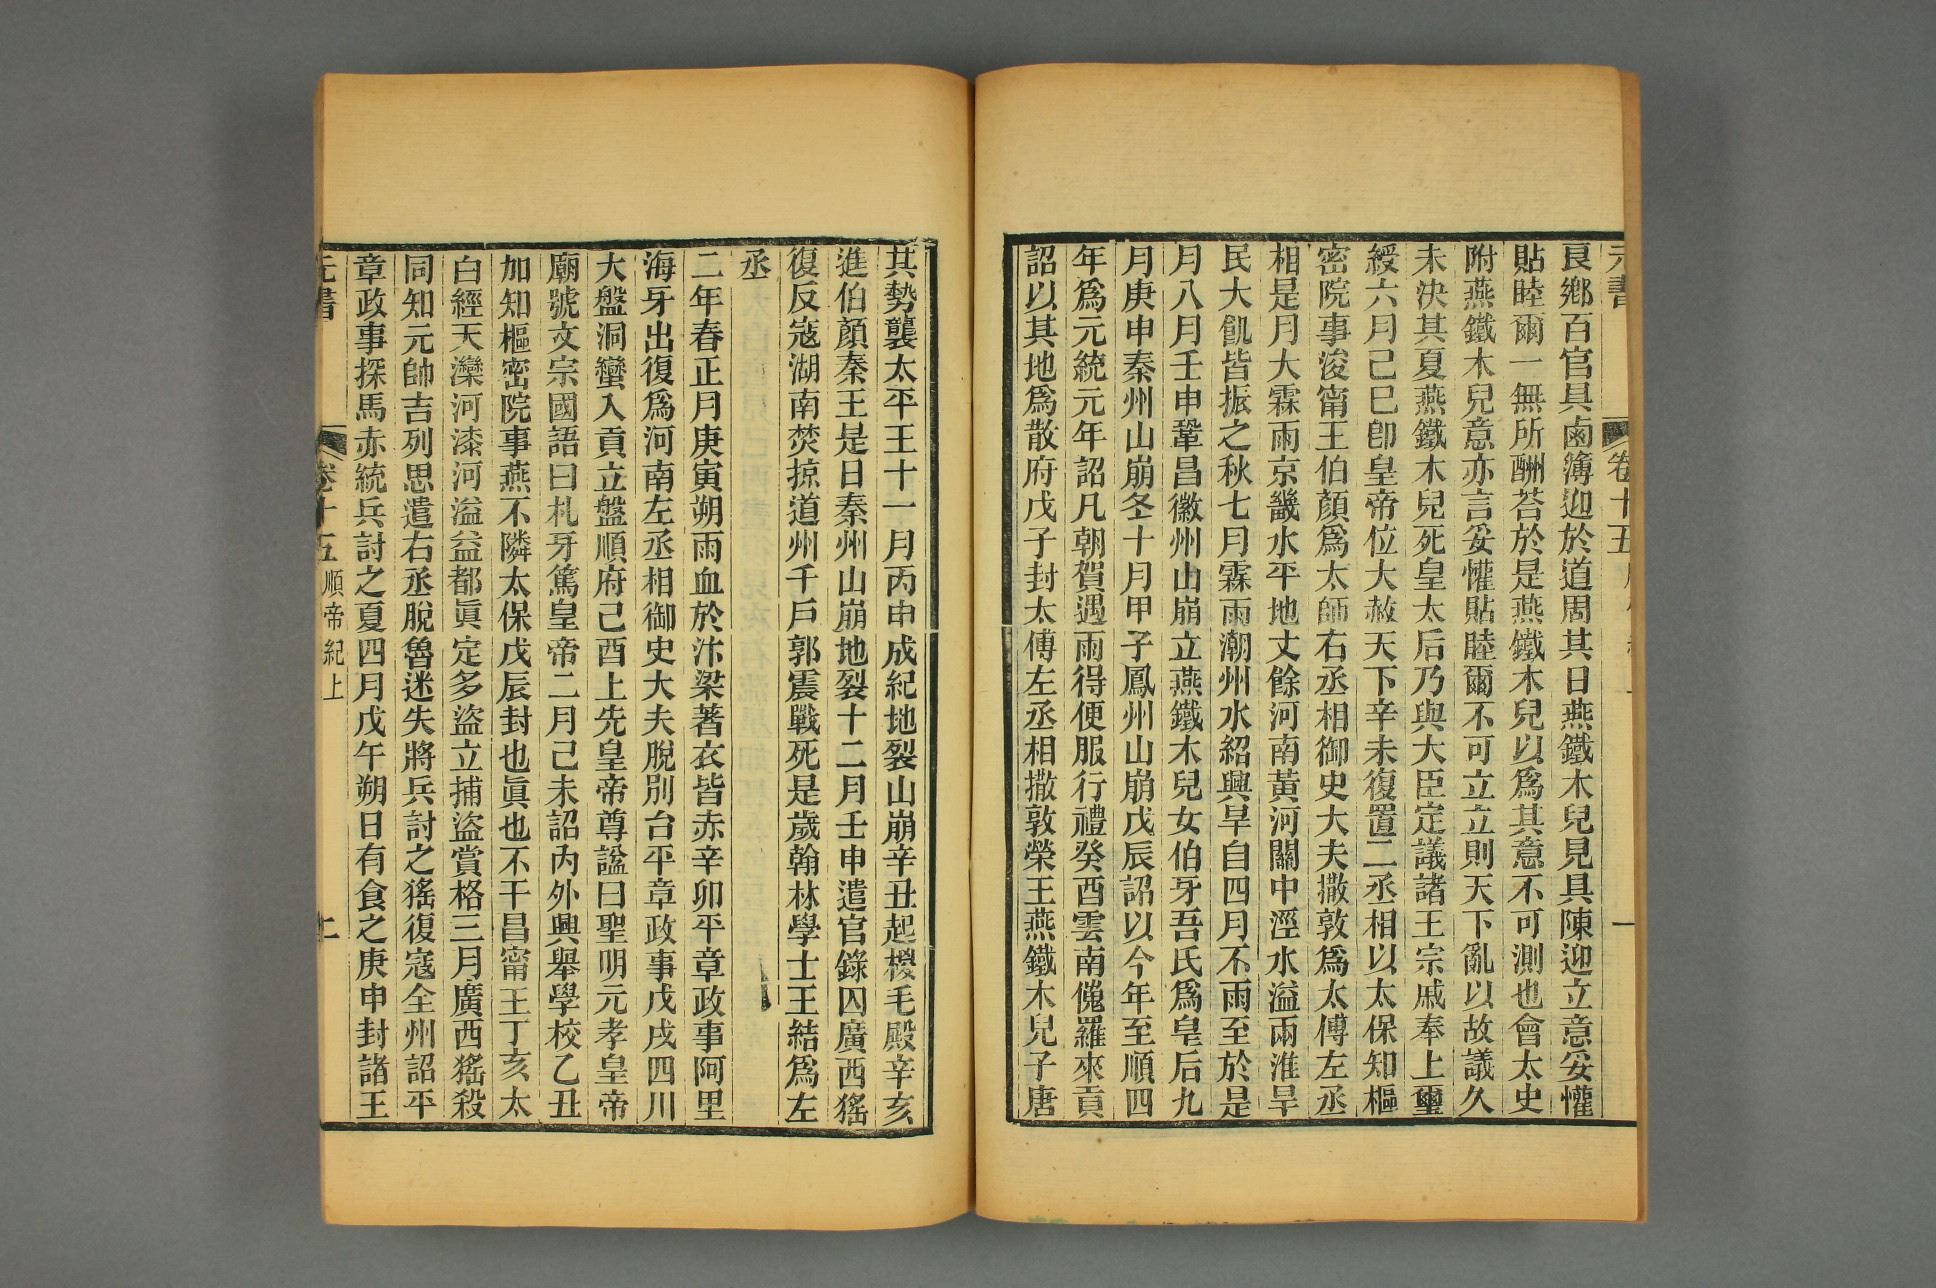 元書
卷十五
一
良鄉百官具鹵簿迎於道周其日燕鐵木兒見具陳迎立意妥懽
貼睦爾一無所酬荅於是燕鐵木兒以爲其意不可測也會太史
附燕鐵木兒意亦言妥懽貼睦爾不可立立則天下亂以故議久
未決其夏燕鐵木兒死皇太后乃與大臣定議諸王宗戚奉上璽
綬六月己巳卽皇帝位大赦天下辛未復置二丞相以太保知樞
密院事浚甯王伯顏爲太師右丞相御史大夫撒敦爲太傅左丞
相是月大霖雨京畿水平地丈餘河南黃河關中涇水溢兩淮旱
民大飢皆振之秋七月霖雨潮州水紹興旱自四月不雨至於是
月八月壬申鞏昌徽州山崩立燕鐵木兒女伯牙吾氏爲皇后九
月庚申秦州山崩冬十月甲子鳳州山崩戊辰詔以今年至順四
年爲元統元年詔凡朝賀遇雨得便服行禮癸酉雲南儸羅來貢
詔以其地爲散府戊子封太傅左丞相撒敦榮王燕鐵木兒子唐
其勢襲太平王十一月丙申成紀地裂山崩辛丑起椶毛殿辛亥
進伯顏秦王是日秦州山崩地裂十二月壬申遣官錄囚廣西猺
復反寇湖南焚掠道州千戶郭震戰死是歲翰林學士王結爲左
丞
二年春正月庚寅朔雨血於汴梁著衣皆赤辛卯平章政事阿里
海牙出復爲河南左丞相御史大夫脫別台平章政事戊戌四川
大盤洞蠻入貢立盤順府己酉上先皇帝尊諡曰聖明元孝皇帝
廟號文宗國語曰札牙篤皇帝二月己未詔內外興舉學校乙丑
加知樞密院事燕不隣太保戊辰封也眞也不干昌甯王丁亥太
白經天灤河漆河溢益都眞定多盜立捕盜賞格三月廣西猺殺
同知元帥吉列思遣右丞脫魯迷失將兵討之猺復寇全州詔平
章政事探馬赤統兵討之夏四月戊午朔日有食之庚申封諸王
元書
卷十五 順帝紀上
二